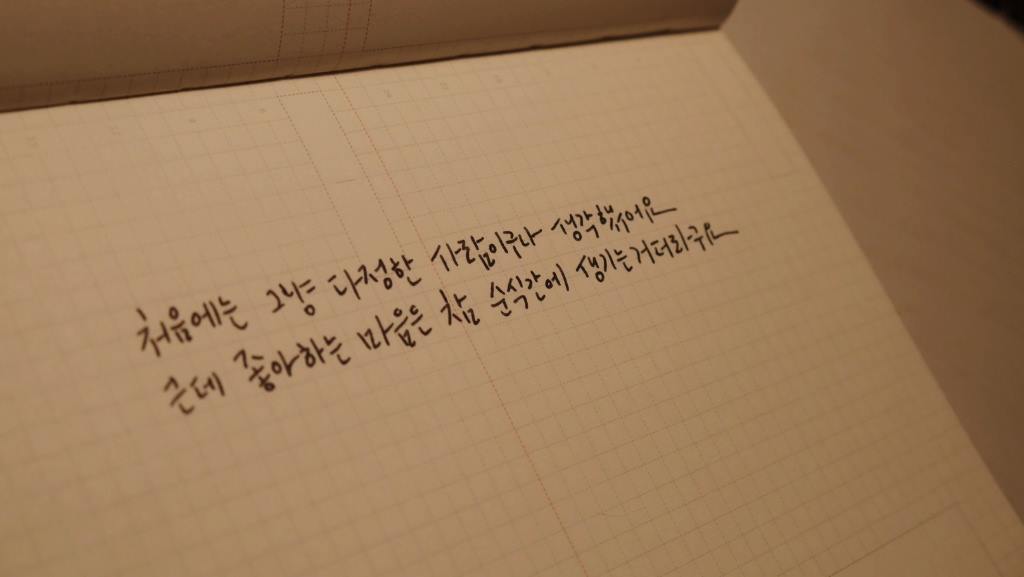 처음에는 그냥 다정한 사람이구나 생각했어요
근데 좋아하는 마음은 참 순식간에 생기는거더라구요